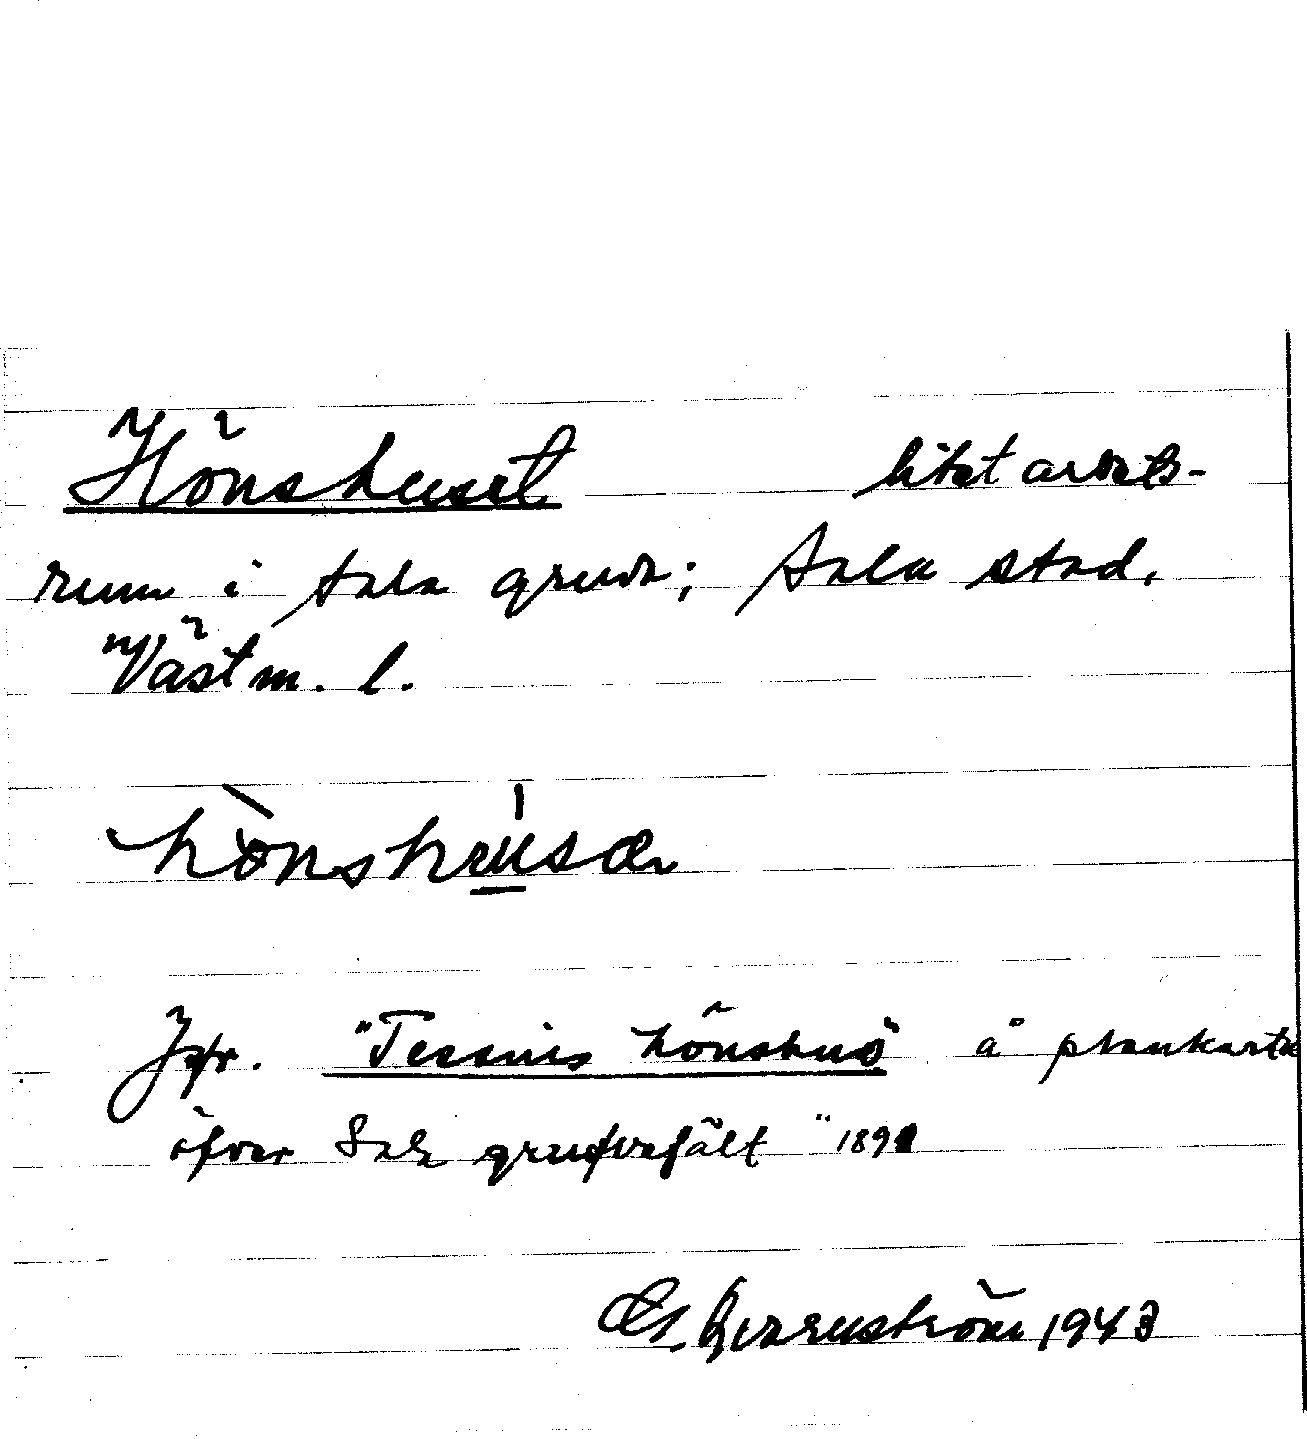 Hönshuset litet arbets-
rum i Sala gruva; Sala stad,
Västm. l.
hönshusæ
Jfr. "Tessins hönshus" å plankarta
öfver Sala grufvefält" 1891
1943